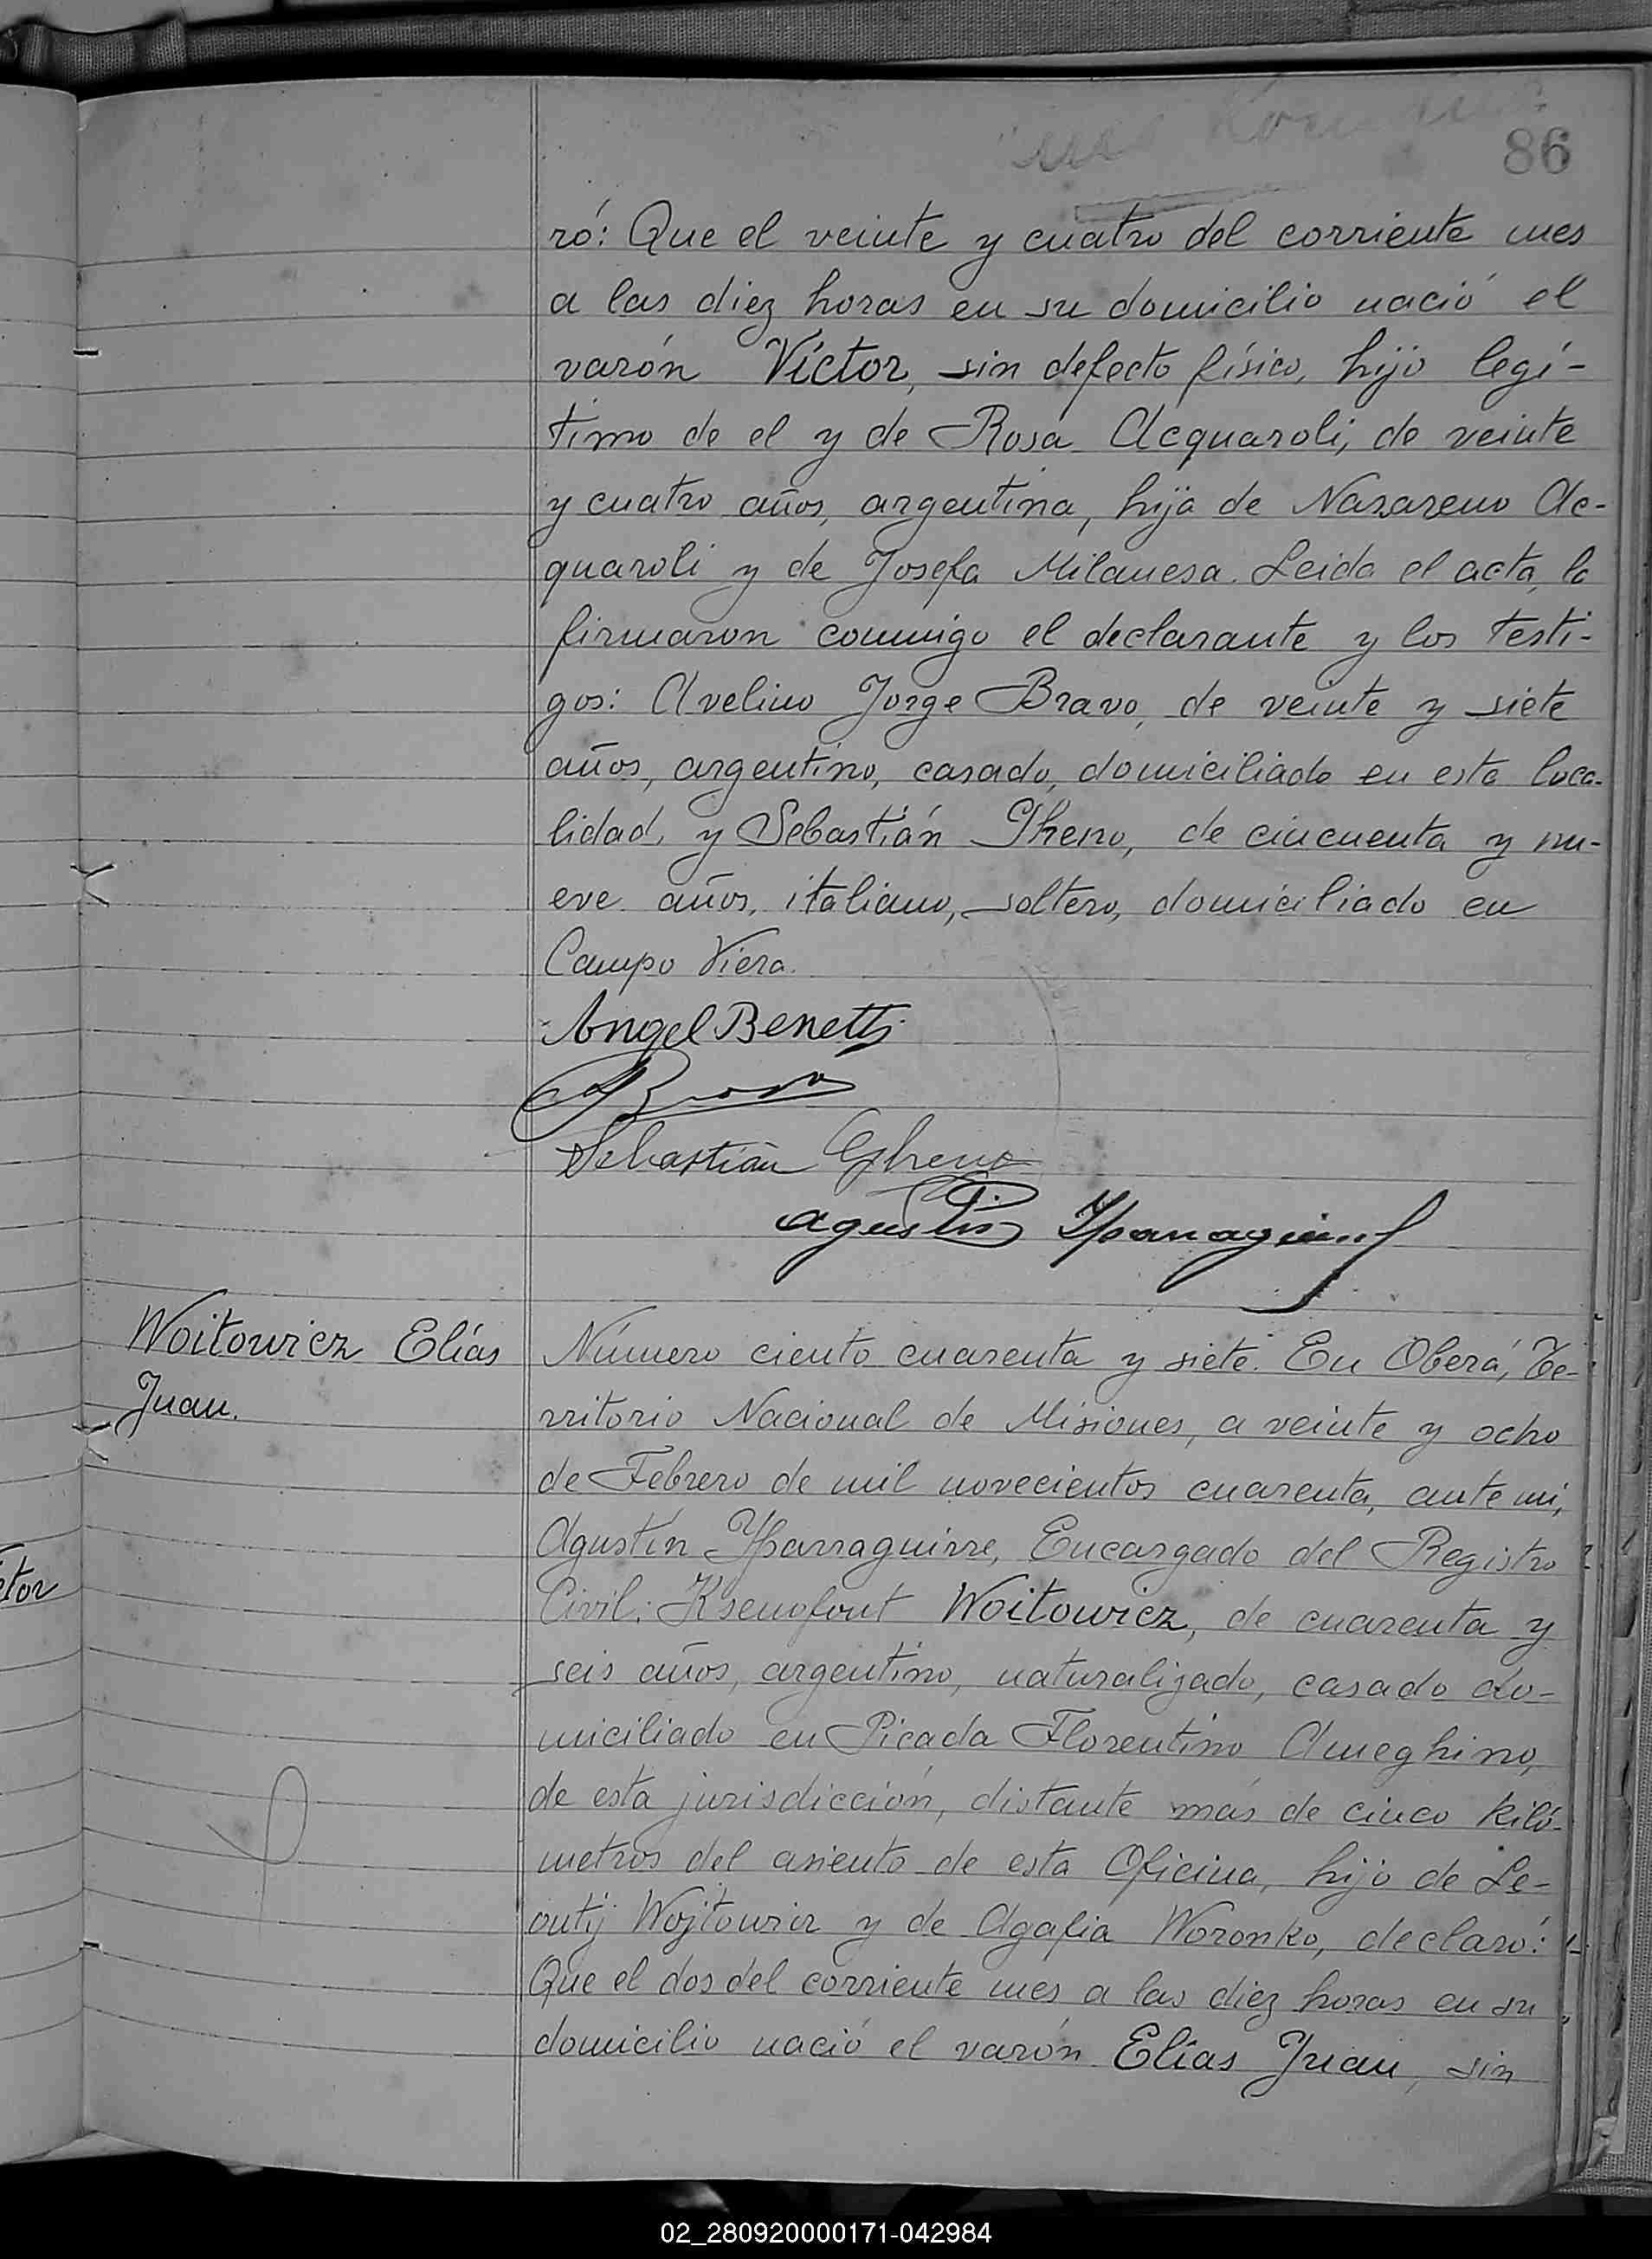 86
ró: Que el veinte y cuatro del corriente mes
a las diez horas en su domicilio nació el
varón Víctor, sin defecto físico, hijo legí-
timo de el y de Rosa Acquaroli, de veinte
y cuatro años, argentina, hija de Nazareno Ac-
quaroli y de Josefa Milanesa. Leida el acta, la
firmaron conmigo el declarante y los testi-
gos: Avelino Jorge Bravo, de veinte y siete
años, argentino, casado, domiciliado en esta loca-
lidad, y Sebastián Gheno, de cincuenta y nu-
eve años, italiano, soltero, domiciliado en
Campo Viera.
Angel Benetti
ABravo
Sebastián Gheno
Agustín Yparraguirre
Woitowicz Elías
Juan.
Número ciento cuarenta y siete. En Oberá, Te-
rritorio Nacional de Misiones, a veinte y ocho
de Febrero de mil novecientos cuarenta, ante mi,
Agustín Yparraguirre, Encargado del Registro
Civil: Ksenofont Woitowicz, de cuarenta y
seis años, argentino, naturalizado, casado do-
miciliado en Picada Florentino Ameghino,
de esta jurisdicción, distante más de cinco kiló-
metros del asiento de esta Oficina, hijo de Le-
ontij Wojtowicz y de Agafia Woronko, declaró:
Que el dos del corriente mes a las diez horas en su
domicilio nació el varón Elías Juan, sin
02_280920000171-042984